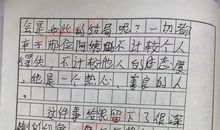 会是如此的结局呢？一切都
在于那位阿姨她不计较个人
得失，不计较他人的
，她是一个热心、善良的人
。
这件事结果留下了很深